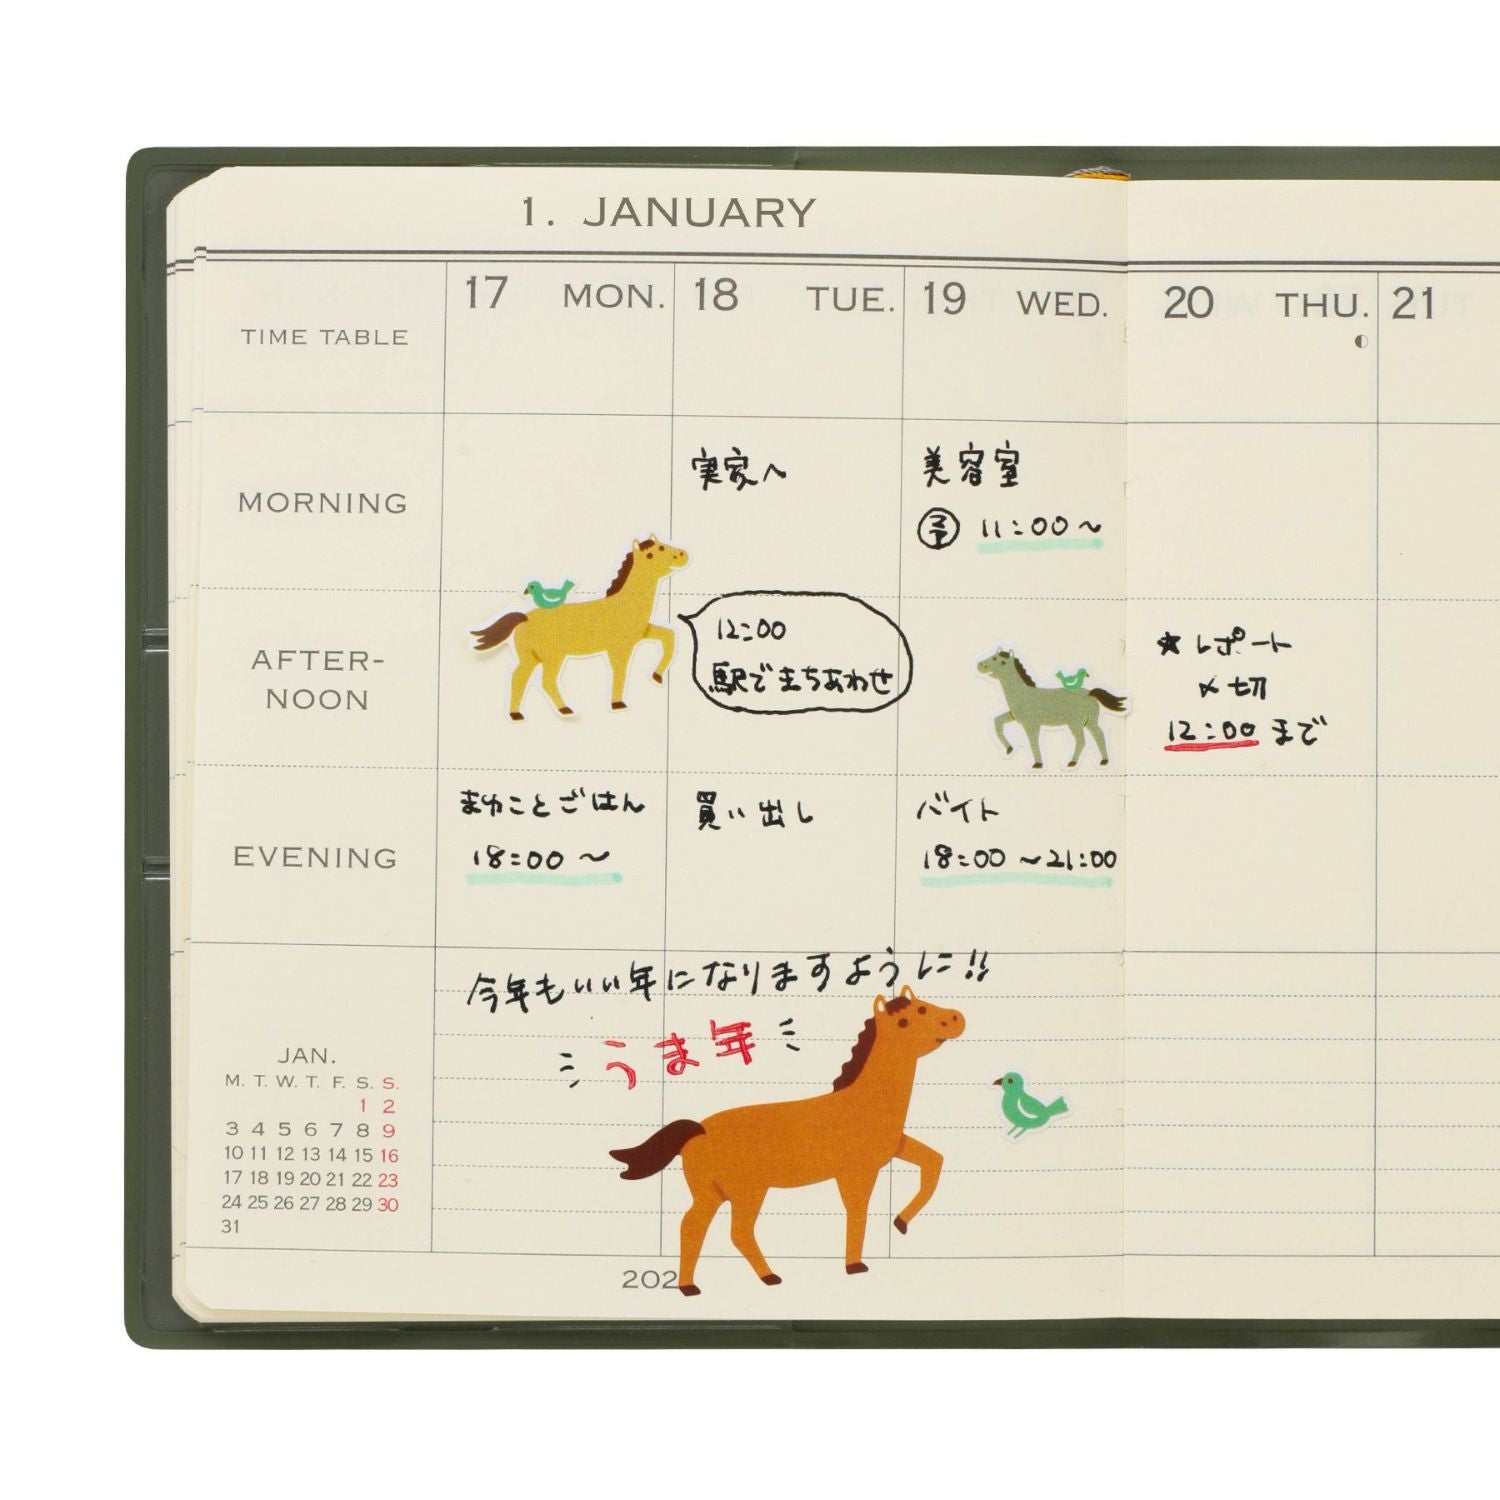 1. JANUARY
17 MON. 18 TUE. 19 WED. 20 THU. 21
TIME TABLE
MORNING
実家へ
美容室
予 11:00〜
AFTER-
NOON
12:00
駅でまちあわせ
★レポート
〆切
12:00まで
EVENING
まゆことごはん
18:00〜
買い出し
バイト
18:00〜21:00
今年もいい年になりますように!!
うま年
JAN.
M. T. W. T. F. S. S.
1 2
3 4 5 6 7 8 9
10 11 12 13 14 15 16
17 18 19 20 21 22 23
24 25 26 27 28 29 30
31
202